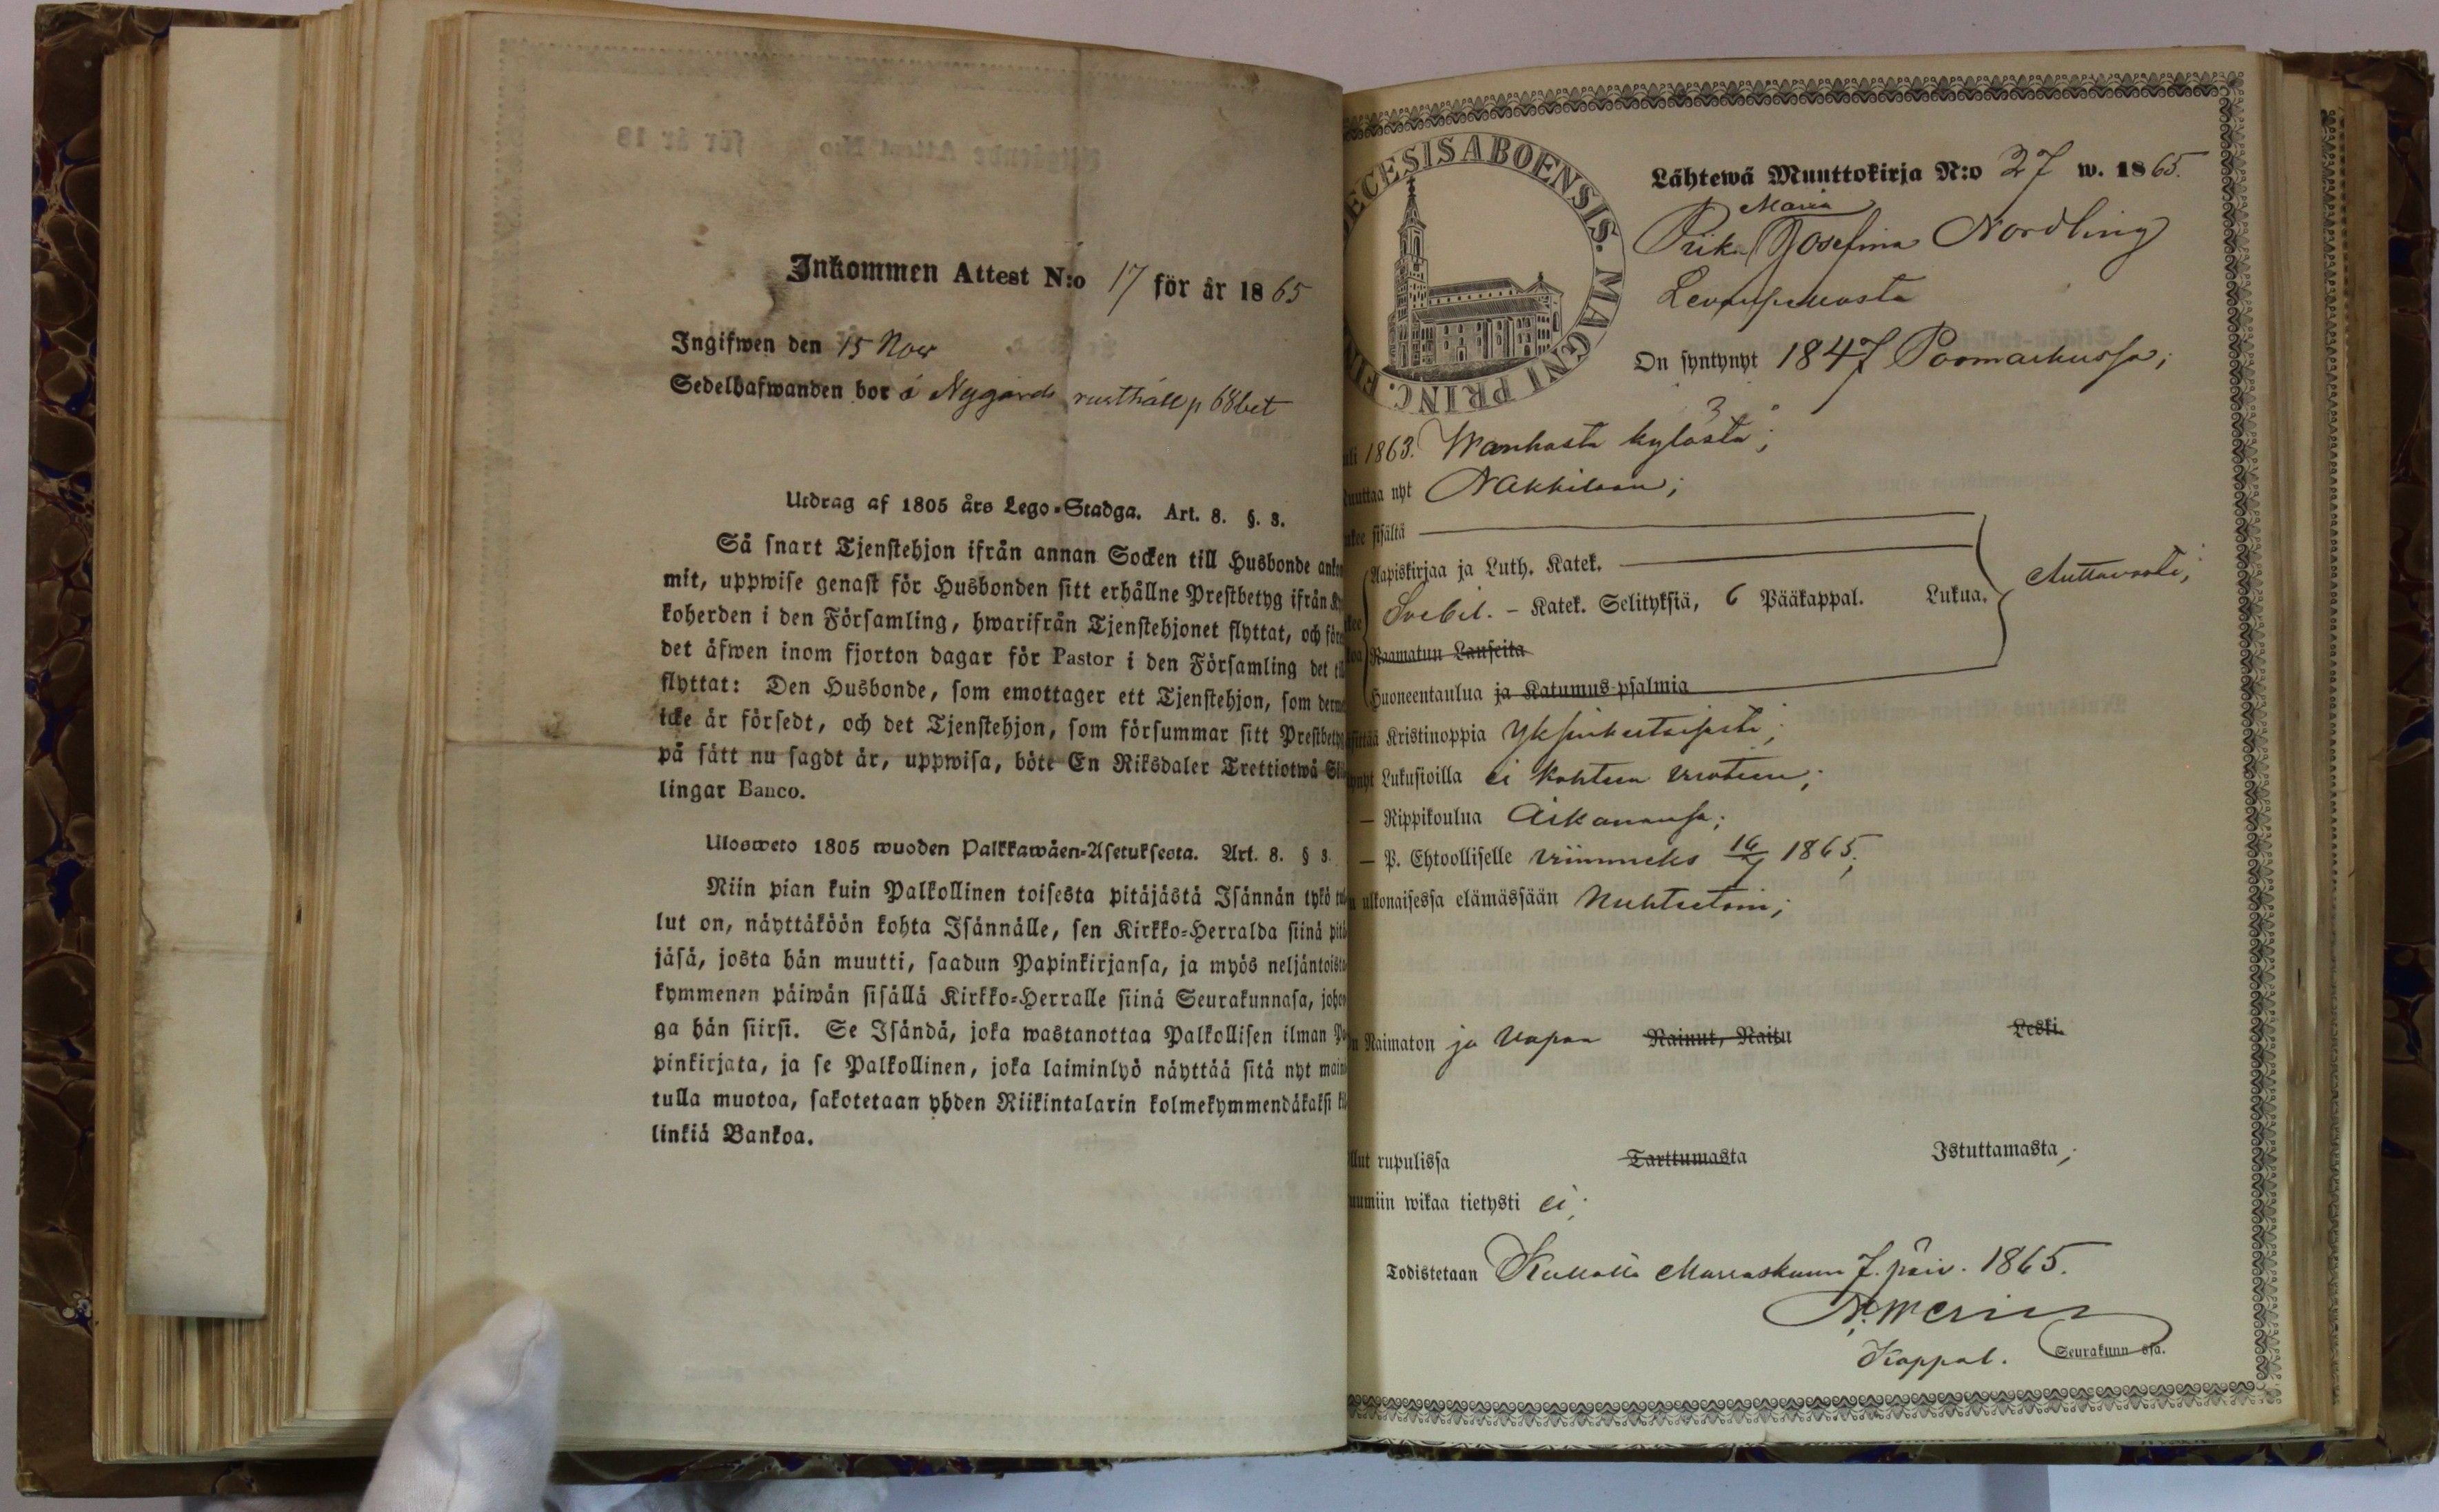 Inkommen Attest N:o 17 för år 1865
Ingifwen den 15 Nov
Sedelhafwanden bor å Nygårds rusthåll p 68 bet
Utdrag af 1805 års Lego-Stadga. Art. 8. §. 3.
Så snart Tjenstehjon ifrån annan Socken till Husbonde ankom
mit, uppwise genast för Husbonden sitt erhållne Prestbetyg ifrån Ky
koherden i den Församling, hwarifrån Tjenstehjonet flyttat, och före
det äfwen inom fjorton dagar för Pastor i den Församling det till
flyttat: Den Husbonde, som emottager ett Tjenstehjon, som derme
icke är försedt, och det Tjenstehjon, som försummar sitt Prestbetyg
på sätt nu sagdt är, uppwisa, böte En Riksdaler Trettiotwå Skil
lingar Banco.
Ulosweto 1805 wuoden Palkkawäen-Asetuksesta. Art. 8. § 3.
Niin pian kuin Palkollinen toisesta pitäjästä Isännän tykö tul
lut on, näyttäköön kohta Isännälle, sen Kirkko-Herralda siinä pitä
jäsä, josta hän muutti, saadun Papinkirjansa, ja myös neljäntoista
kymmenen päiwän sisällä Kirkko-Herralle siinä Seurakunnasa, johon
ga hän siirsi. Se Isändä, joka wastanottaa Palkollisen ilman Pa
pinkirjata, ja se Palkollinen, joka laiminlyö näyttää sitä nyt maini
tulla muotoa, sakotetaan yhden Riikintalarin kolmekymmendäkaksi kil
linkiä Bankoa.
DECESIS ABOENSIS. MAGNI PRINC. FIN
Lähtewä Muuttokirja N:o 27 w. 1865.
Maria
Piika Josefina Nordling
On syntynyt 1847 Poomarkussa;
uli 1863. Wanhasta kylästä;
uuttaa nyt Nakkilaan;
kee sisältä
Aapiskirjaa ja Luth. Katek.
Svebil. - Katek. Selityksiä, 6 Pääkappal. Lukua. Auttavasti;
Raamatun Lauseita
Huoneentaulua ja Katumus-psalmia
sittää Kristinoppia Yksinkertaisesti;
ynyt Lukusioilla ei kahteen vuoteen;
— Rippikoulua Aikanansa;
— P. Ehtoolliselle viimmeks 16/7 1865;
n ulkonaisessa elämässään Nuhteetoin;
n Naimaton ja Vapaa Nainut, Naitu Leski.
llut rupulissa Tarttumasta Istuttamasta;
uumiin wikaa tietysti ei;
Todistetaan Kullalla Marraskuun 7. päiv. 1865.
Kappal. Seurakunn ssa.